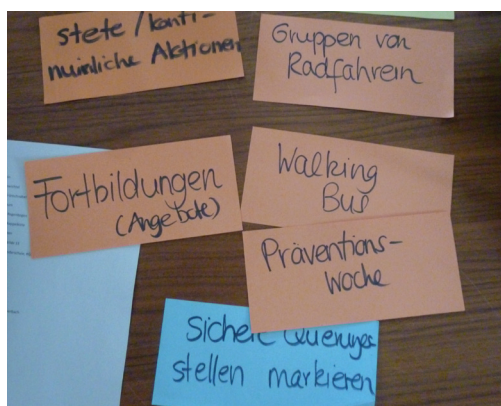 stete / konti-
nuinliche Aktionen
Gruppen von
Radfahrern
Fortbildungen
(Angebote)
Walking
Bus
Präventions-
woche
Sichere Querungs-
stellen markieren